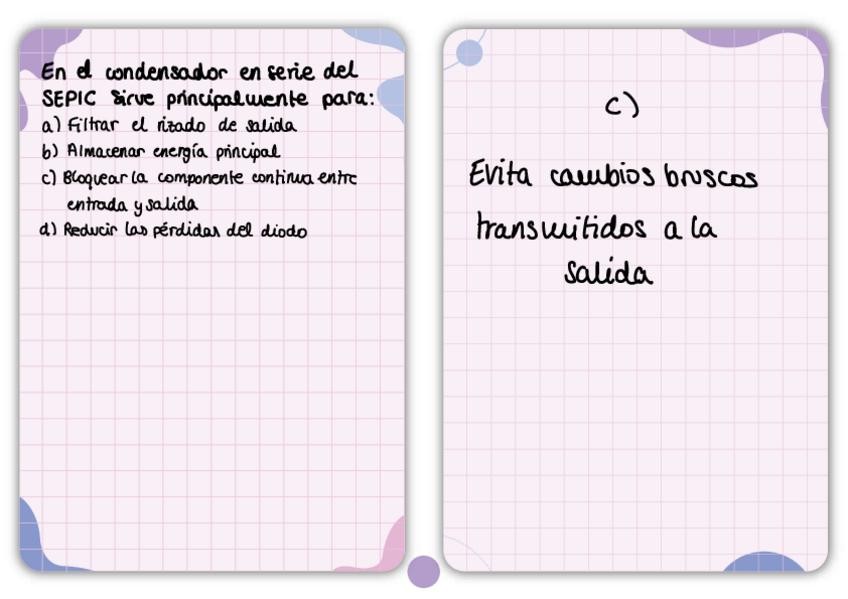 En el condensador en serie del
SEPIC sirve principalmente para:
a) Filtrar el rizado de salida
b) Almacenar energía principal
c) Bloquear la componente continua entre
entrada y salida
d) Reducir las pérdidas del diodo
c)
Evita cambios bruscos
transmitidos a la
salida